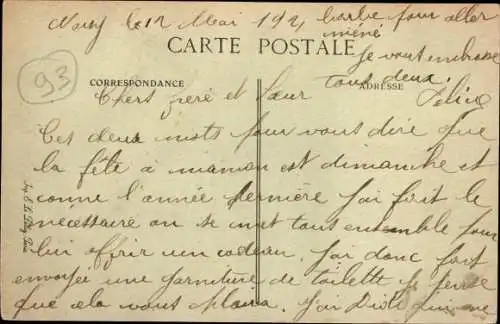 le 12 Mai 192
barbe pour aller
mené
CARTE POSTALE
je vous embrasse
tous deux.
93
CORRESPONDANCE
ADRESSE
Chers frère et Sœur
Ces deux mots pour vous dire que
la fête à maman est dimanche et
comme l'année dernière j'ai fait le
nécessaire on se met tous ensemble pour
lui offrir un cadeau. j'ai donc fait
envoyée une garniture de toilette je pense
que cela vous plaira. j'ai